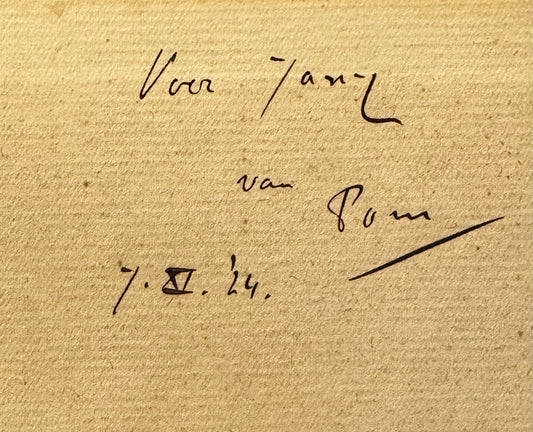 Voor Jany
van Pom
7. XI. '24.